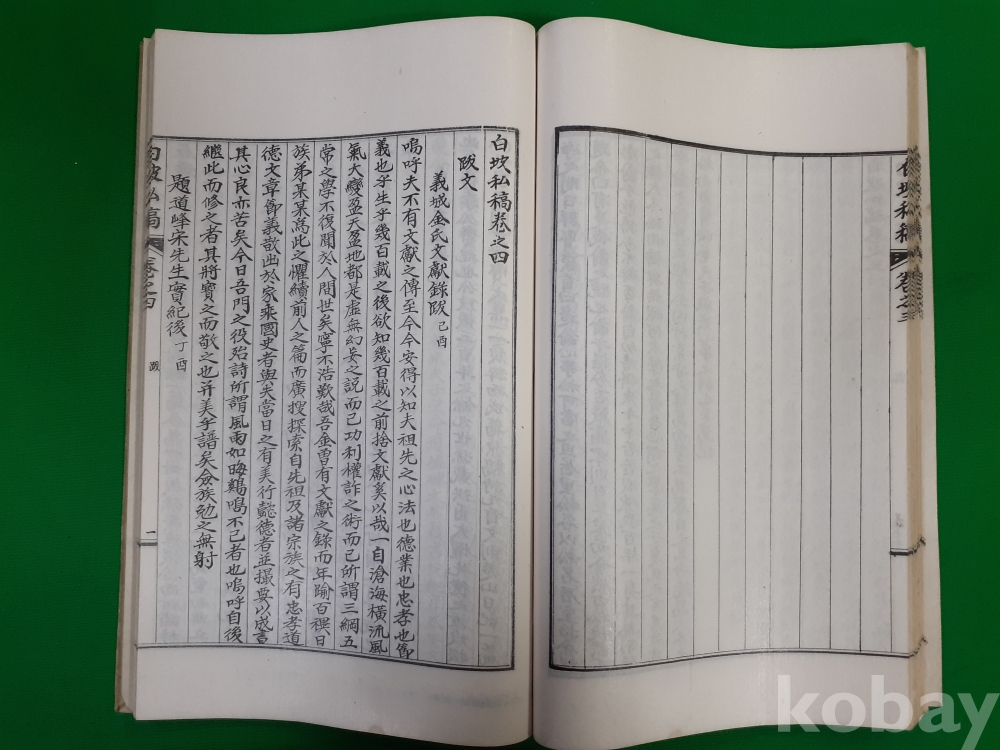 白坎私稿 卷之三
白坎私稿卷之四
跋文
義城金氏文獻錄跋 己酉
嗚呼夫不有文獻之傳至今今安得以知夫祖先之心法也德業也忠孝也節
義也乎生乎幾百載之後欲知幾百載之前捨文獻奚以哉一自滄海橫流風
氣大變盈天盈地都是虛無幻妄之說而已功利權詐之術而已所謂三綱五
常之學不復聞於人間世矣寧不浩歎哉吾金曾有文獻之錄而年踰百禩日
族弟某某爲此之懼續前人之篇而廣搜探索自先祖及諸宗族之有忠孝道
德文章節義散出於家乘國史者與夫當日之有美行懿德者並撮要以成書
其心良亦苦矣今日吾門之役殆詩所謂風雨如晦鷄鳴不已者也嗚呼自後
繼此而修之者其將寶之而敬之也幷美乎譜矣僉族勉之無射
題道峰宋先生實紀後 丁酉
白坎私稿 卷之四 跋 一
kobay